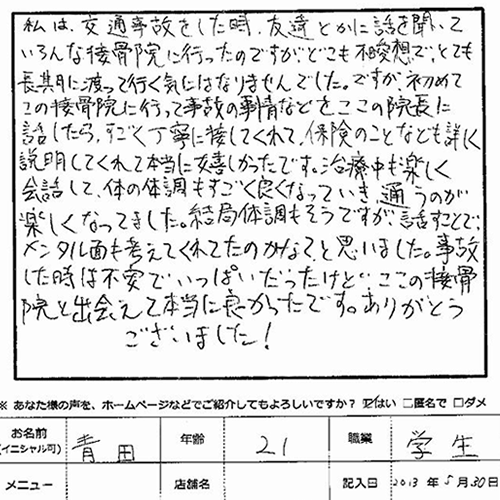 私は、交通事故をした時、友達とかに話を聞いて
いろんな接骨院に行ったのですが、どこも不愛想で、とても
長期に渡って行く気にはなりませんでした。ですが、初めて
この接骨院に行って事故の事情などをここの院長に
話したら、すごく丁寧に接してくれて、保険のことなども詳しく
説明してくれて本当に嬉しかったです。治療中も楽しく
会話して、体の体調もすごく良くなっていき、通うのが
楽しくなってました。結局体調もそうですが、話すことで、
メンタル面も考えてくれてたのかなて、と思いました。事故
した時は不安でいっぱいだったけど、ここの接骨
院と出会えて本当に良かったです。ありがとう
ございました!
※ あなた様の声を、ホームページなどでご紹介してもよろしいですか? ☑はい □匿名で □ダメ
お名前 青田 年齢 21 職業 学生
(イニシャル可)
メニュー 店舗名 記入日 2013年5月30日